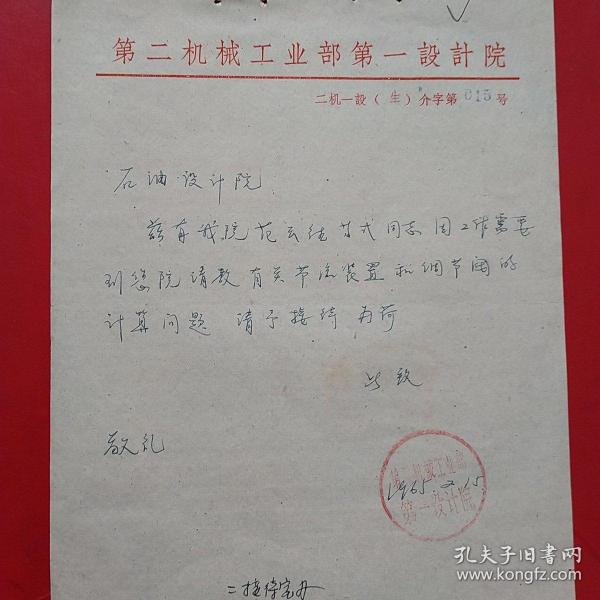 第二机械工业部第一設計院
二机一設(生)介字第015号
石油设计院
兹有我院范 同志因工作需要
到您院请教有关节流装置和调节阀的
计算问题 请予接待为荷
此致
敬礼
第二机械工业部
1965.2.15
第一设计院
孔夫子旧书网
www.kongfz.com